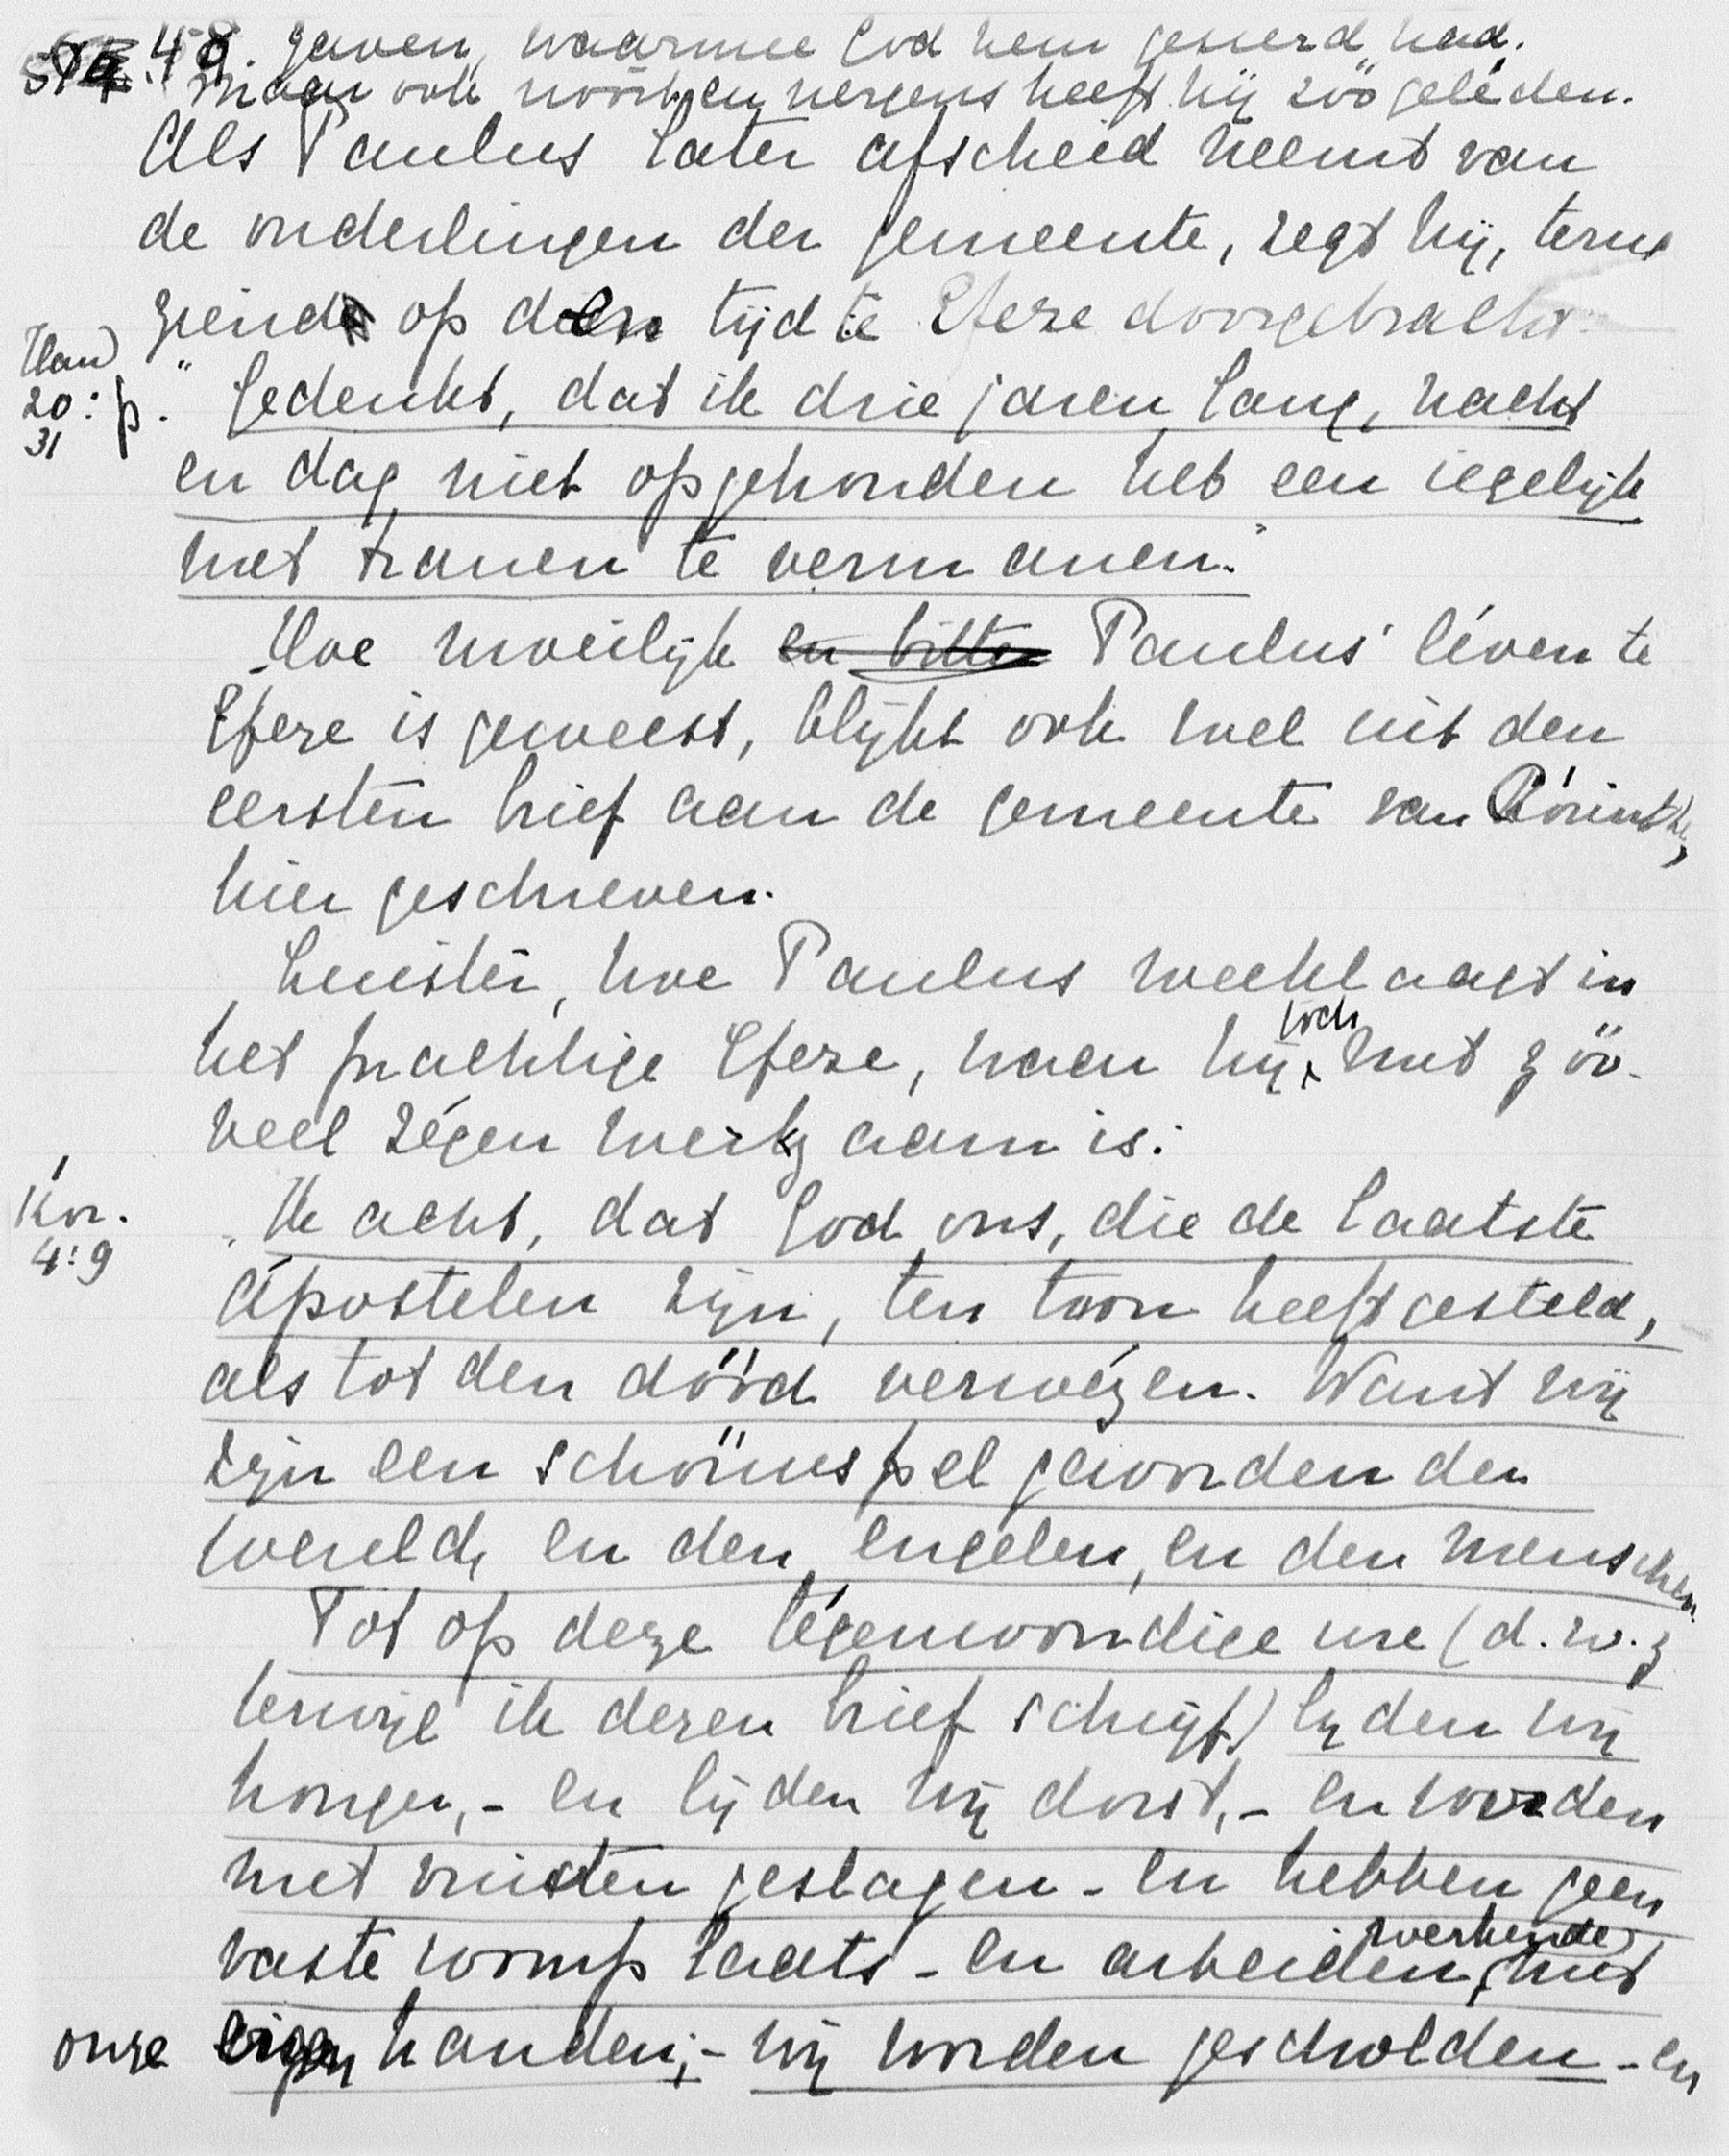 48. gaven, waarmee God hem gesierd had.
Maar ook nóóit en nergens heeft hij zóó geléden.
Als Paulus later afscheid neemt van
de ouderlingen der gemeente, zegt hij, terug
ziend op den tijd te Efeze doorgebracht.
Hand 20:31 p. "Gedenkt, dat ik drie jaren lang, nacht
en dag niet opgehouden heb een iegelijk
met tranen te vermanen."
Hoe moeilijk en bitter Paulus' léven te
Efeze is geweest, blijkt ook wel uit den
eersten brief aan de gemeente van Kórinthe,
hier geschreven.
Luister, hoe Paulus weeklaagt in
het prachtige Efeze, waar hij toch met zóó-
veel zégen werkzaam is:
1 Kor. 4:9 "Ik acht, dat God ons, die de laatste
Apostelen zijn, ten toon heeft gesteld,
als tot den dóód verwézen. Want wij
zijn een schóúwspel geworden der
wereld, en den engelen, en den menschen.
Tot op deze tégenwoordige ure (d.w.z
terwijl ik dezen brief schrijf) lijden wij
honger, - en lijden wij dorst, - en worden
met vuisten geslagen - en hebben geen
vaste woonplaats - en arbeiden, werkende met
onze eigen handen; - wij worden gescholden - en